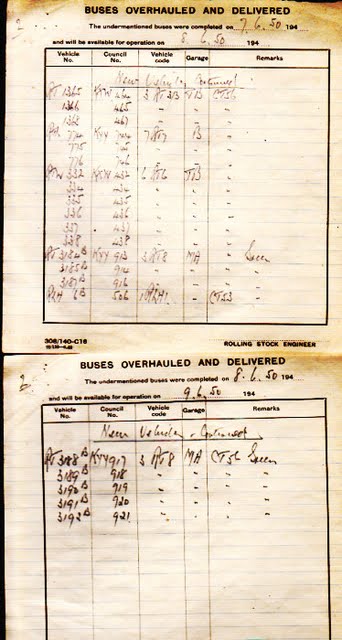 2
BUSES OVERHAULED AND DELIVERED
The undermentioned buses were completed on 7. 6. 50 194
and will be available for operation on 8. 6. 50 194
Vehicle No. Council No. Vehicle code Garage Remarks
New Vehicles Continued
RT 1365 464
1366 465
1368 467
774 KYY 744 B
775 745
776 746
RTW 332 KXW 432 6 RT6 TB
334 434
335 435
336 436
337 437
338 438
RT 3184 B KYY 913 3 RT8 MA Green
3185 B 914
3187 B 916
6 B 506 CT53
306/140-C16
ROLLING STOCK ENGINEER
2
BUSES OVERHAULED AND DELIVERED
The undermentioned buses were completed on 8. 6. 50 194
and will be available for operation on 9. 6. 50 194
Vehicle No. Council No. Vehicle code Garage Remarks
New Vehicles - Continued
RT 3188 B KYY 917 3 RT8 MA CT56 Green
3189 B 918 " " " "
3190 B 919 " " " "
3191 B 920 " " " "
3192 B 921 " " " "